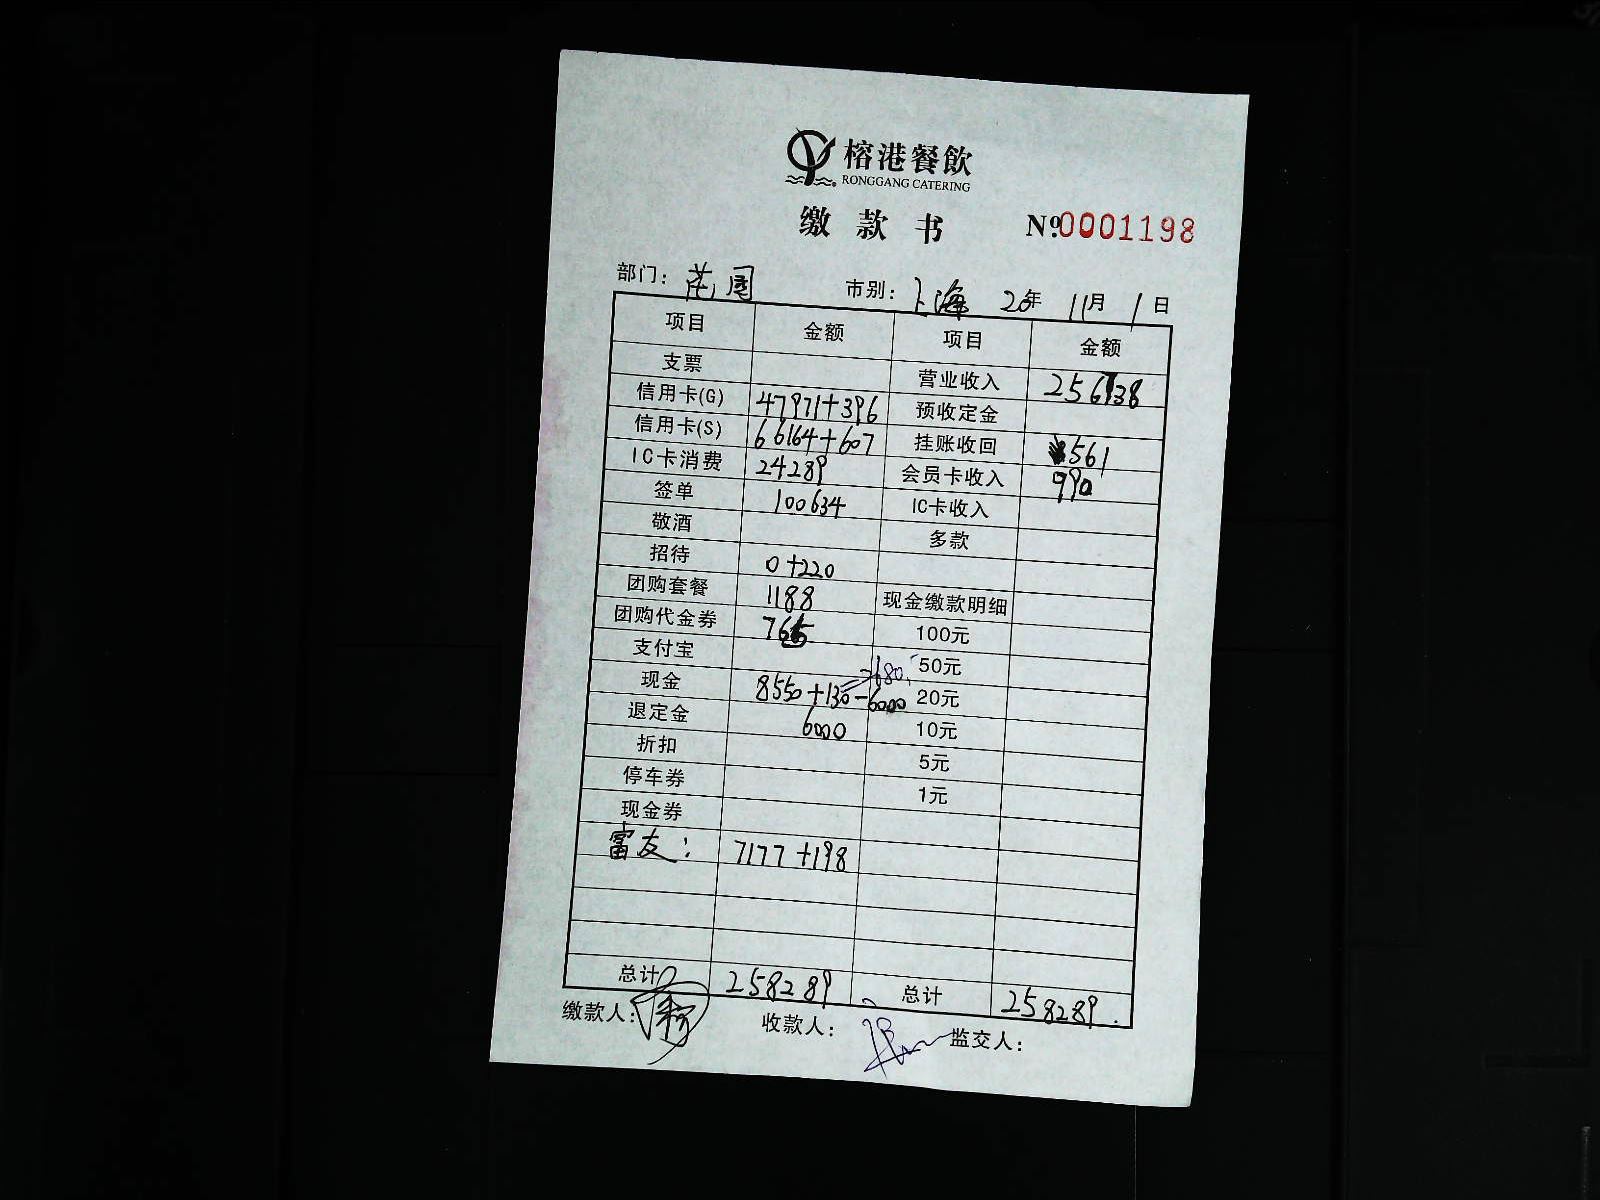 榕港餐飲
RONGGANG CATERING
缴款书 №0001198
部门: 花园 市别: 上海 20年 11月 1日
项目 金额 项目 金额
支票 营业收入 256738
信用卡(G) 47971+396 预收定金
信用卡(S) 66164+607 挂账收回 561
IC卡消费 24289 会员卡收入 990
签单 100634 IC卡收入
敬酒 多款
招待 0+220
团购套餐 1188 现金缴款明细
团购代金券 765 100元
支付宝 50元
现金 8550+130-6000=2680. 20元
退定金 6000 10元
折扣 5元
停车券 1元
现金券
富友: 7177+198
总计 258289 总计 258289.
缴款人: 收款人: 监交人: